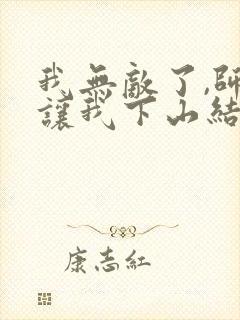 我無敵了,師
讓我下山結
康志紅